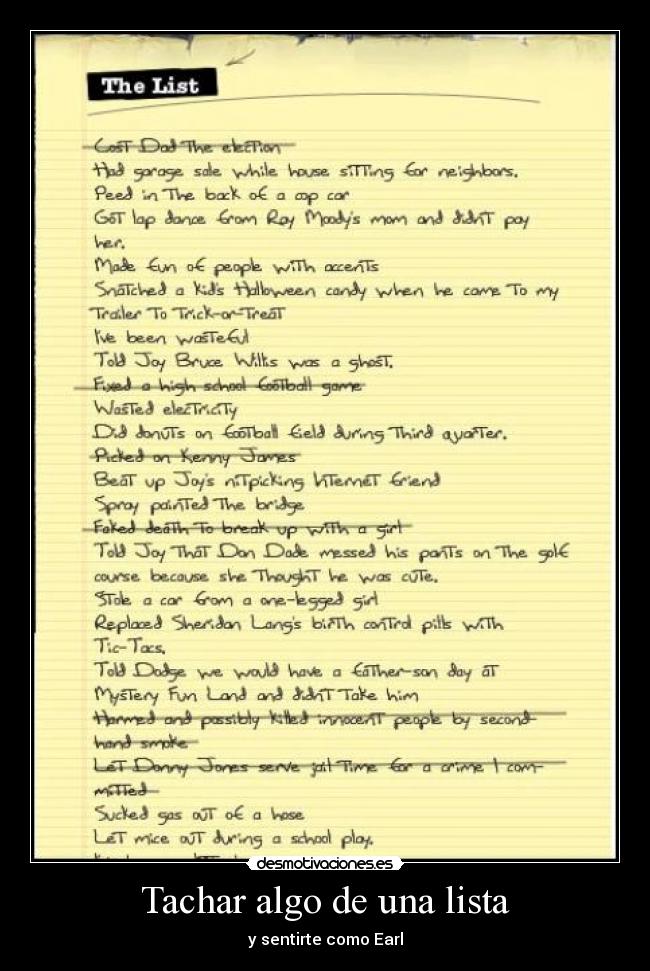 The List
Cost Dad The election
Had garage sale while house sitting for neighbors.
Peed in The back of a cop car
Got lap dance from Ray Moody's mom and didn't pay
her.
Made fun of people with accents
Snatched a kid's Halloween candy when he came To my
Trailer To Trick-or-Treat
I've been wasteful
Told Joy Bruce Willis was a ghost.
Fixed a high school football game
Wasted electricity
Did donuts on football field during Third quarter.
Picked on Kenny James
Beat up Joy's nitpicking Internet friend
Spray painted The bridge
Faked death To break up with a girl
Told Joy That Don Dade messed his pants on The golf
course because she Thought he was cute.
Stole a car from a one-legged girl
Replaced Sheridan Lang's birth control pills with
Tic-Tacs.
Told Dodge we would have a father-son day at
Mystery Fun Land and didn't Take him
Harmed and possibly killed innocent people by second
hand smoke
Let Donny Jones serve jail Time for a crime I com-
mitted
Sucked gas out of a hose
Let mice out during a school play.
desmotivaciones.es
Tachar algo de una lista
y sentirte como Earl